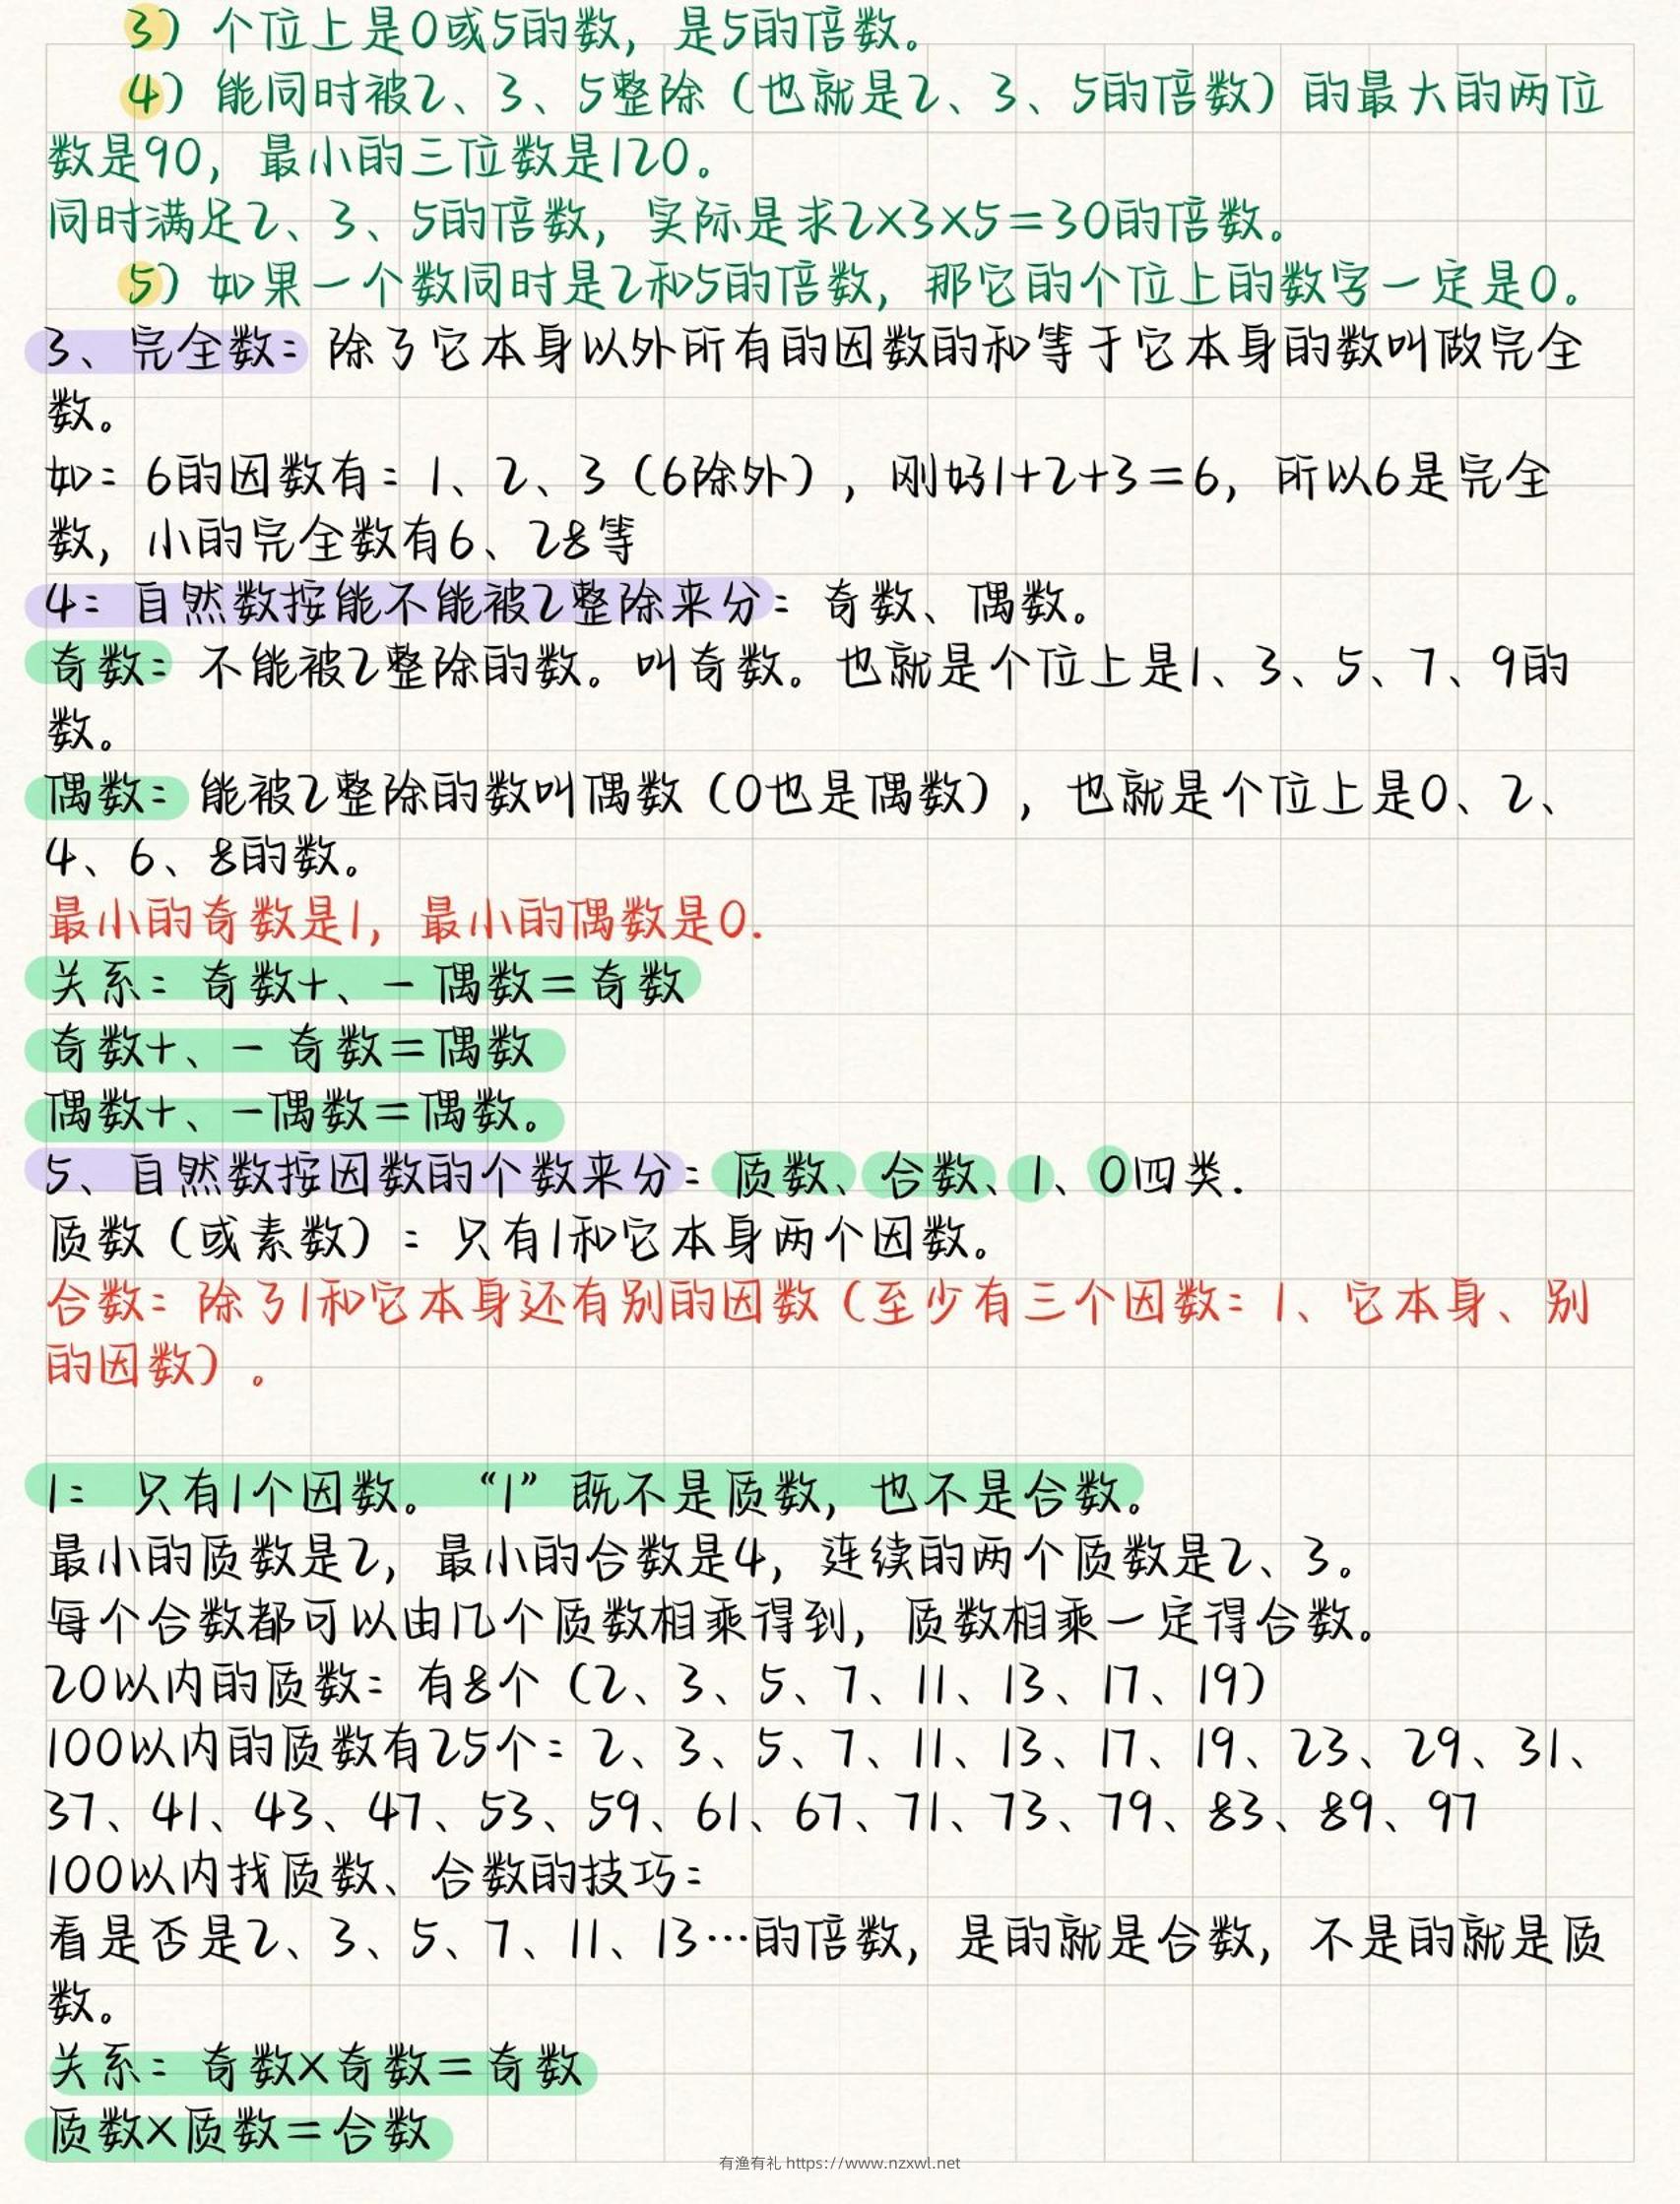 3）个位上是0或5的数，是5的倍数。
4）能同时被2、3、5整除（也就是2、3、5的倍数）的最大的两位
数是90，最小的三位数是120。
同时满足2、3、5的倍数，实际是求2×3×5=30的倍数。
5）如果一个数同时是2和5的倍数，那它的个位上的数字一定是0。
3、完全数：除了它本身以外所有的因数的和等于它本身的数叫做完全
数。
如：6的因数有：1、2、3（6除外），刚好1+2+3=6，所以6是完全
数，小的完全数有6、28等
4：自然数按能不能被2整除来分：奇数、偶数。
奇数：不能被2整除的数。叫奇数。也就是个位上是1、3、5、7、9的
数。
偶数：能被2整除的数叫偶数（0也是偶数），也就是个位上是0、2、
4、6、8的数。
最小的奇数是1，最小的偶数是0.
关系：奇数+、－偶数=奇数
奇数+、－奇数=偶数
偶数+、－偶数=偶数。
5、自然数按因数的个数来分：质数、合数、1、0四类.
质数（或素数）：只有1和它本身两个因数。
合数：除了1和它本身还有别的因数（至少有三个因数：1、它本身、别
的因数）。
1： 只有1个因数。“1”既不是质数，也不是合数。
最小的质数是2，最小的合数是4，连续的两个质数是2、3。
每个合数都可以由几个质数相乘得到，质数相乘一定得合数。
20以内的质数：有8个（2、3、5、7、11、13、17、19）
100以内的质数有25个：2、3、5、7、11、13、17、19、23、29、31、
37、41、43、47、53、59、61、67、71、73、79、83、89、97
100以内找质数、合数的技巧：
看是否是2、3、5、7、11、13…的倍数，是的就是合数，不是的就是质
数。
关系：奇数×奇数=奇数
质数×质数=合数
有渔有礼 https://www.nzxwl.net